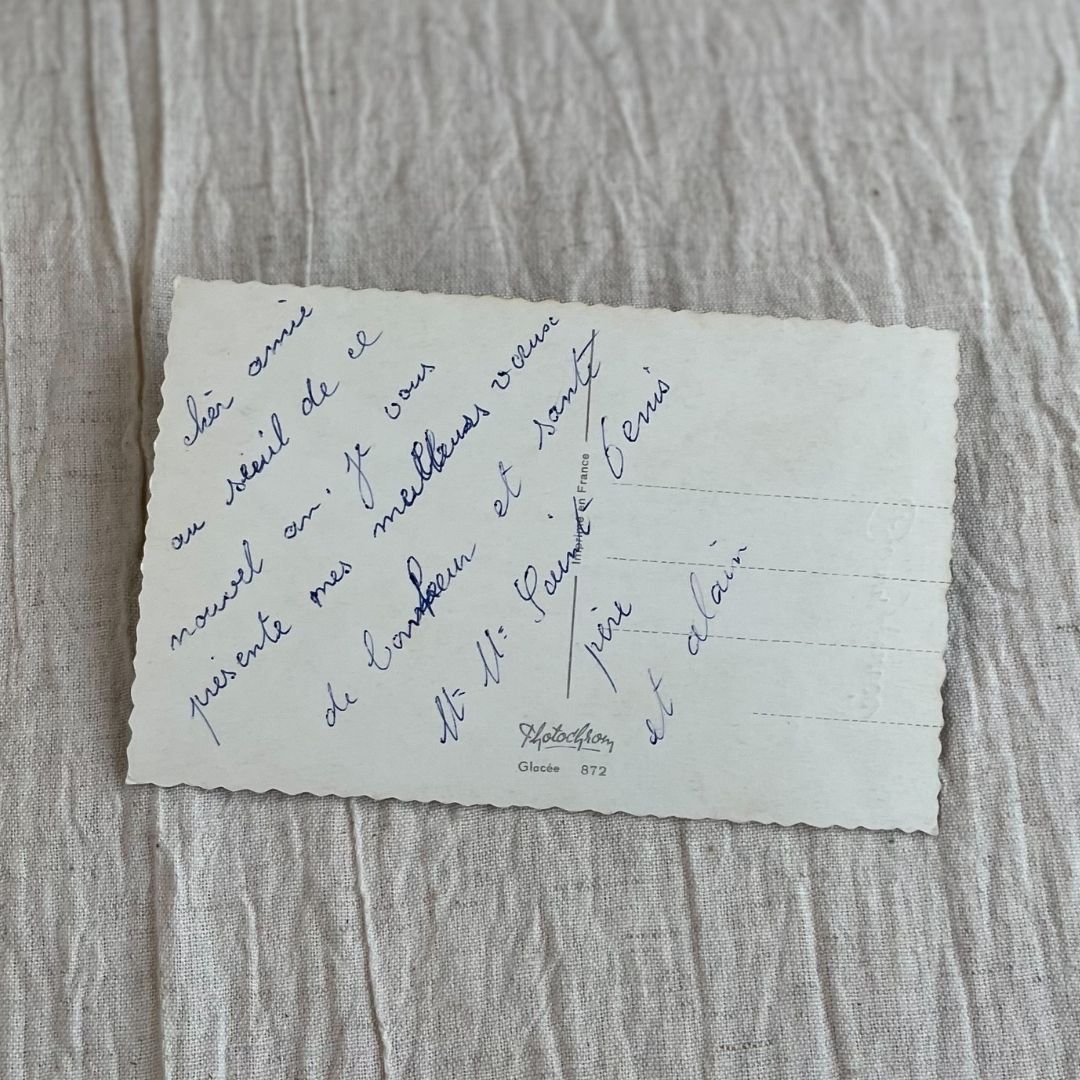 chèr amie
au seuil de ce
nouvel an. je vous
présente mes meilleurs vœux
de bonheur et santé
Mr Me Denis
père
et alain
Imprimé en France
Photochrom
Glacée 872